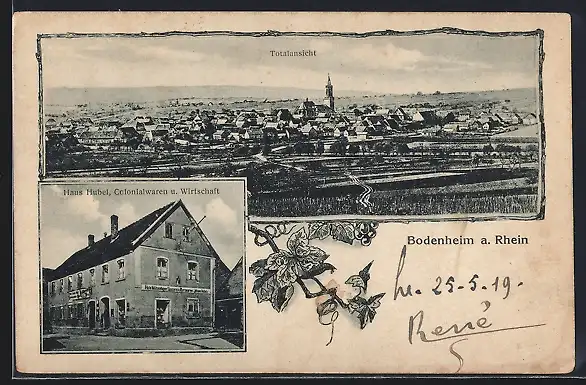 Totalansicht
Hans Hubel, Colonialwaren u. Wirtschaft
Bodenheim a. Rhein
25-5-19.
René